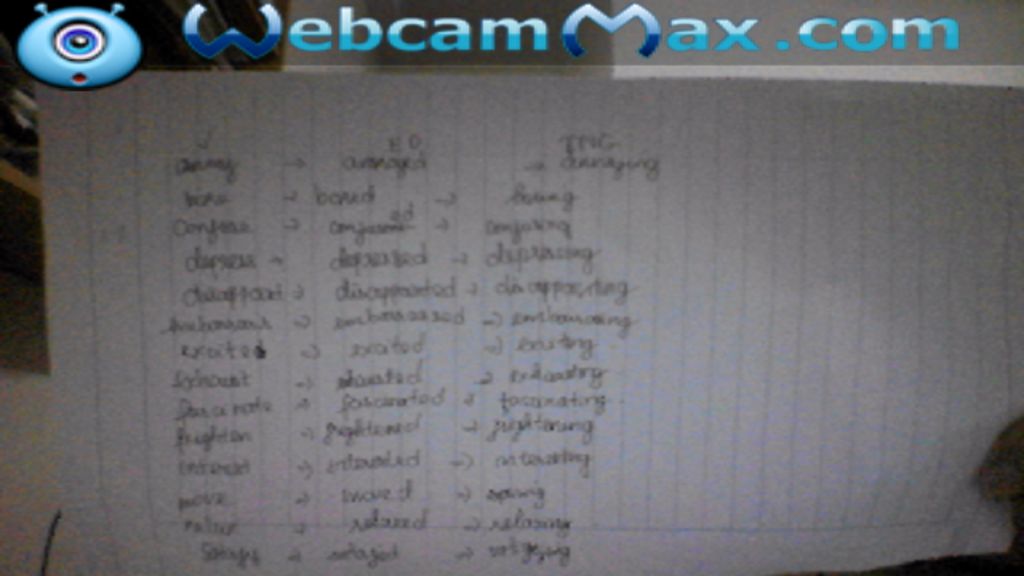 WebcamMax.com
V ED ING
annoy → annoyed → annoying
bore → bored → boring
Confuse → confused → confusing
depress → depressed → depressing
disappoint → disappointed → disappointing
→ embarassed → embarassing
excited → excited → exciting
Exhaust → → exhausting
fascinate → fascinated → fascinating
frighten → frightened → frightening
interest → interested → interesting
move → moved →
relax → relaxed → relaxing
Satisfy → →